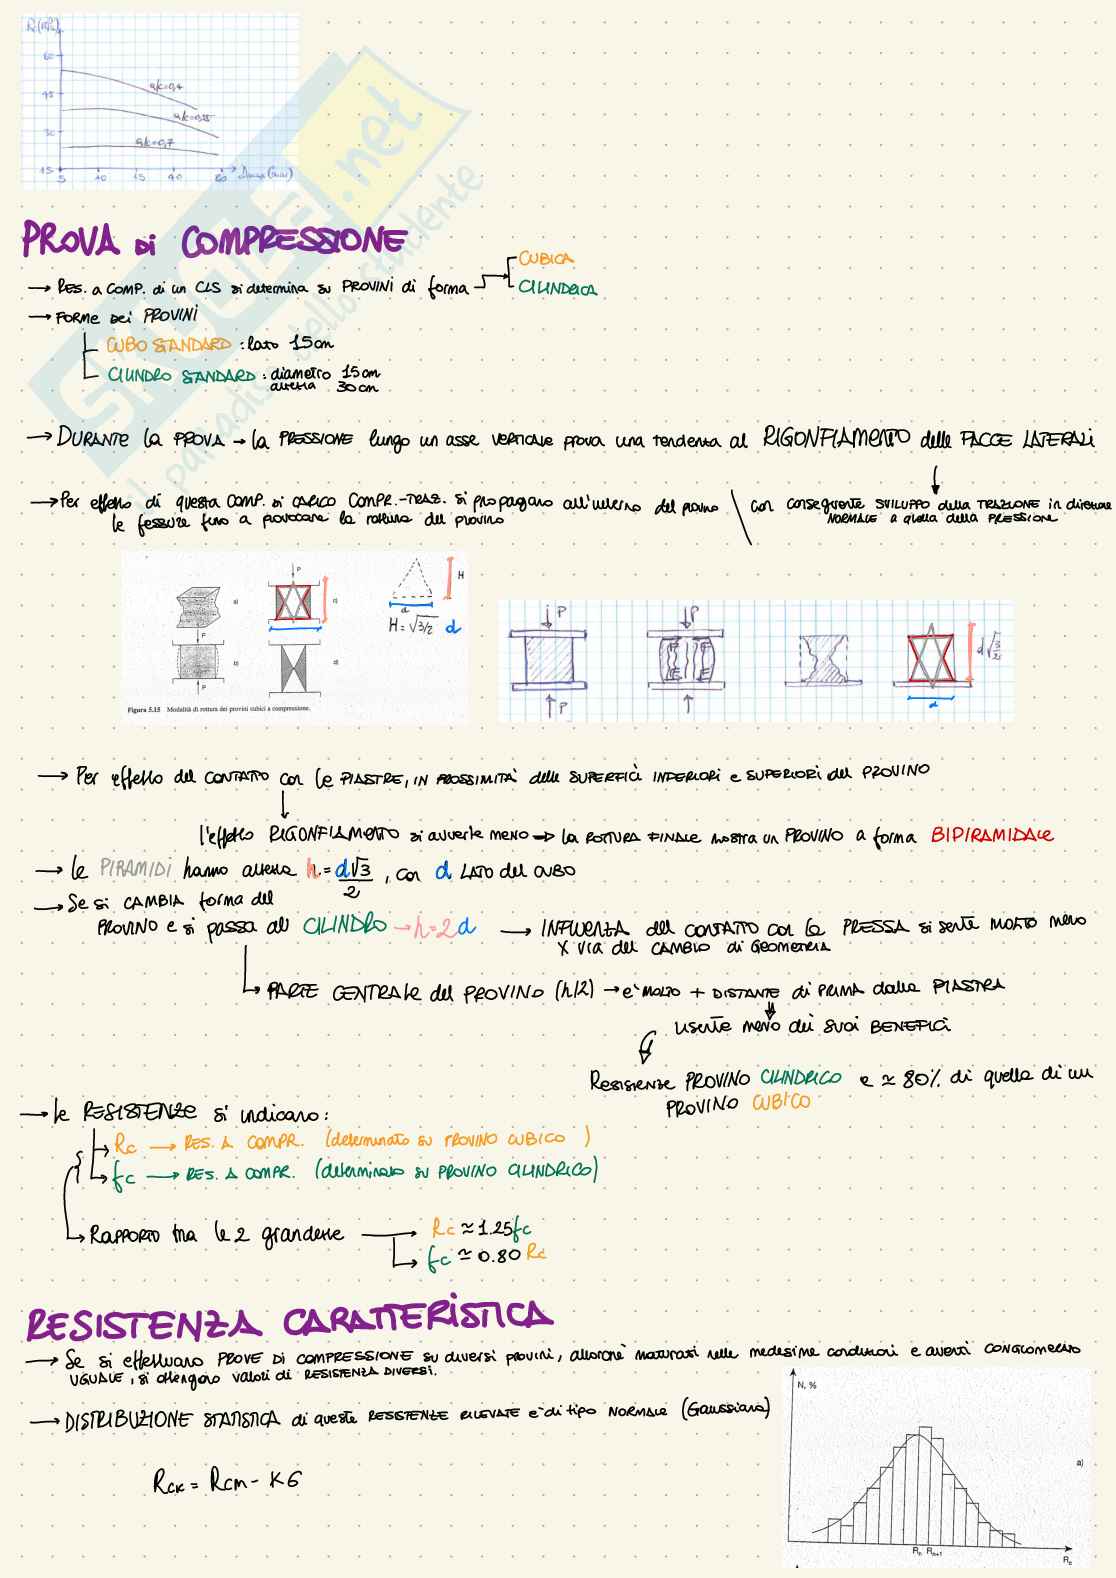 60
45
a/c=0,4
30
a/c=0,7
15
5 10 15 40 80
PROVA di COMPRESSIONE
→ RES. a COMP. di un CLS si determina su PROVINI di forma
CUBICA
CILINDRICA
→ FORME DEI PROVINI
CUBO STANDARD : lato 15cm
CILINDRO STANDARD : diametro 15cm
altezza 30cm
→ DURANTE la PROVA → la PRESSIONE lungo un asse VERTICALE prova una tendenza al RIGONFIAMENTO delle FACCE LATERALI
con conseguente SVILUPPO della TRAZIONE in direzione
NORMALE a quella della PRESSIONE
→ Per effetto di questa COMB. di CARICO COMPR.-TRAZ. si propagano all'interno del provino
le fessure fino a provocare la rottura del provino
P
a)
c)
H
d
H = √3/2 d
P
b)
d)
P
Figura 5.15 Modalità di rottura dei provini cubici a compressione.
P
P
P
d√3/2
d
→ Per effetto del CONTATTO con le PIASTRE, IN PROSSIMITÀ delle SUPERFICI INFERIORI e SUPERIORI del PROVINO
l'effetto RIGONFIAMENTO si avverte meno → LA ROTTURA FINALE mostra un PROVINO a forma BIPIRAMIDALE
→ le PIRAMIDI hanno altezza h = d√3/2, con d LATO del CUBO
→ Se si CAMBIA forma del
PROVINO e si passa al CILINDRO → h=2d → INFLUENZA del CONTATTO con la PRESSA si sente MOLTO meno
X via del CAMBIO di GEOMETRIA
PARTE CENTRALE del PROVINO (h/2) → e' MOLTO + DISTANTE di PRIMA dalla PIASTRA
risente meno dei suoi BENEFICI
Resistenze PROVINO CILINDRICO e ≃ 80% di quella di un
PROVINO CUBICO
→ Le RESISTENZE si indicano:
Rc → RES. A COMPR. (determinato su PROVINO CUBICO )
fc → RES. A COMPR. (determinato su PROVINO CILINDRICO)
RAPPORTO tra le 2 grandezze
Rc ≃ 1.25fc
fc ≃ 0.80 Rc
RESISTENZA CARATTERISTICA
→ Se si effettuano PROVE DI COMPRESSIONE su diversi provini, allorchè maturati nelle medesime condizioni e aventi CONGLOMERATO
UGUALE, si ottengono valori di RESISTENZA DIVERSI.
→ DISTRIBUZIONE STATISTICA di queste RESISTENZE RILEVATE e' di tipo NORMALE (Gaussiana)
Rck = Rcm - Kσ
N, %
a)
Rn Rn+1
Rc
SKUOLA.net
il paradiso dello studente